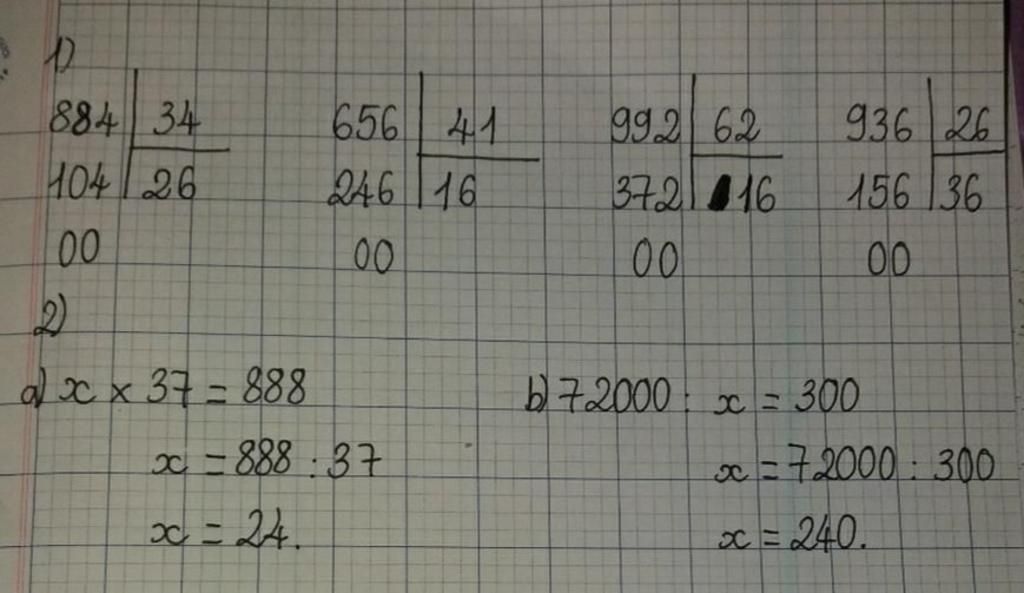 1)
884 34 656 41 992 62 936 26
104 26 246 16 372 16 156 36
00 00 00 00
2)
a) x × 37 = 888 b) 72000 : x = 300
x = 888 : 37 x = 72000 : 300
x = 24. x = 240.